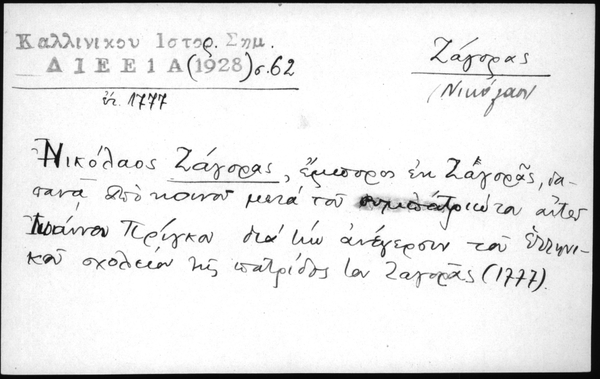 Καλλινίκου Ιστορ. Σημ.
ΔΙΕΕ1Α (1928) σ. 62
ἔτ. 1777
Ζάγορας
Νικόλαος
Νικόλαος Ζάγορας, ἔμπορος ἐκ Ζαγορᾶς, δα-
πανᾷ ἀπὸ κοινοῦ μετά τοῦ συμπατριώτου αὐτοῦ
Ἰωάννου Πρίγκου διά τήν ἀνέγερσιν τοῦ ἑλληνι-
κοῦ σχολείου τῆς πατρίδος των Ζαγορᾶς (1777).